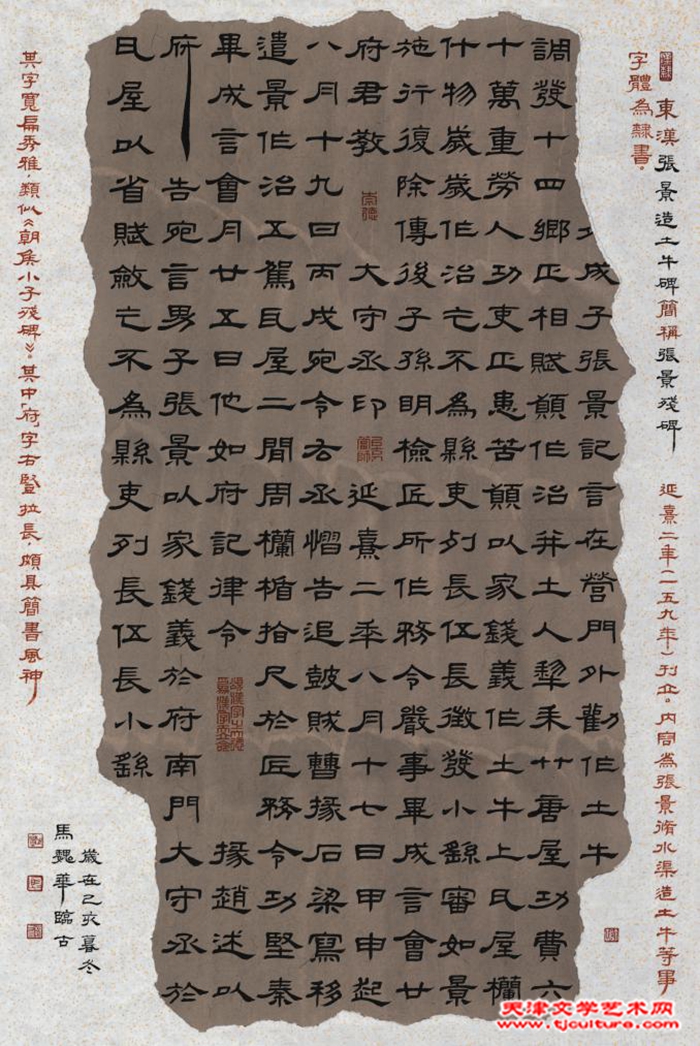 東漢張景造土牛碑簡稱張景殘碑 延熹二年(一五九年)刊立。内容為張景脩水渠造土牛等事
字體為隸書。
成子張景記言在營門外勸作土牛
調發十四鄉正相賦願作治并土人犂耒艹唐屋功費六
十萬重勞人功吏正患苦願以家錢義作土牛上瓦屋欄
什物歲歲作治乞不為縣吏列長伍長徵發小繇審如景
施行復除傳後子孫明檢匠所作務令嚴事畢成言會廿
府君教 大守丞印 延熹二年八月十七日甲申起
八月十九日丙戌宛令右丞慴告追鼓賊曹掾石梁寫移
遣景作治五駕瓦屋二間周欄楯拾尺於匠務令功堅奉
畢成言會月廿五日他如府記律令 掾趙述以
府 告宛言男子張景以家錢義於府南門大守丞於
瓦屋以省賦斂乞不為縣吏列長伍長小繇
其字寬扁秀雅,類似《朝侯小子殘碑》。其中府字右豎拉長,頗具簡書風神
歲在己亥暮冬
馬魏華臨古
天津文学艺术网
www.tjculture.com